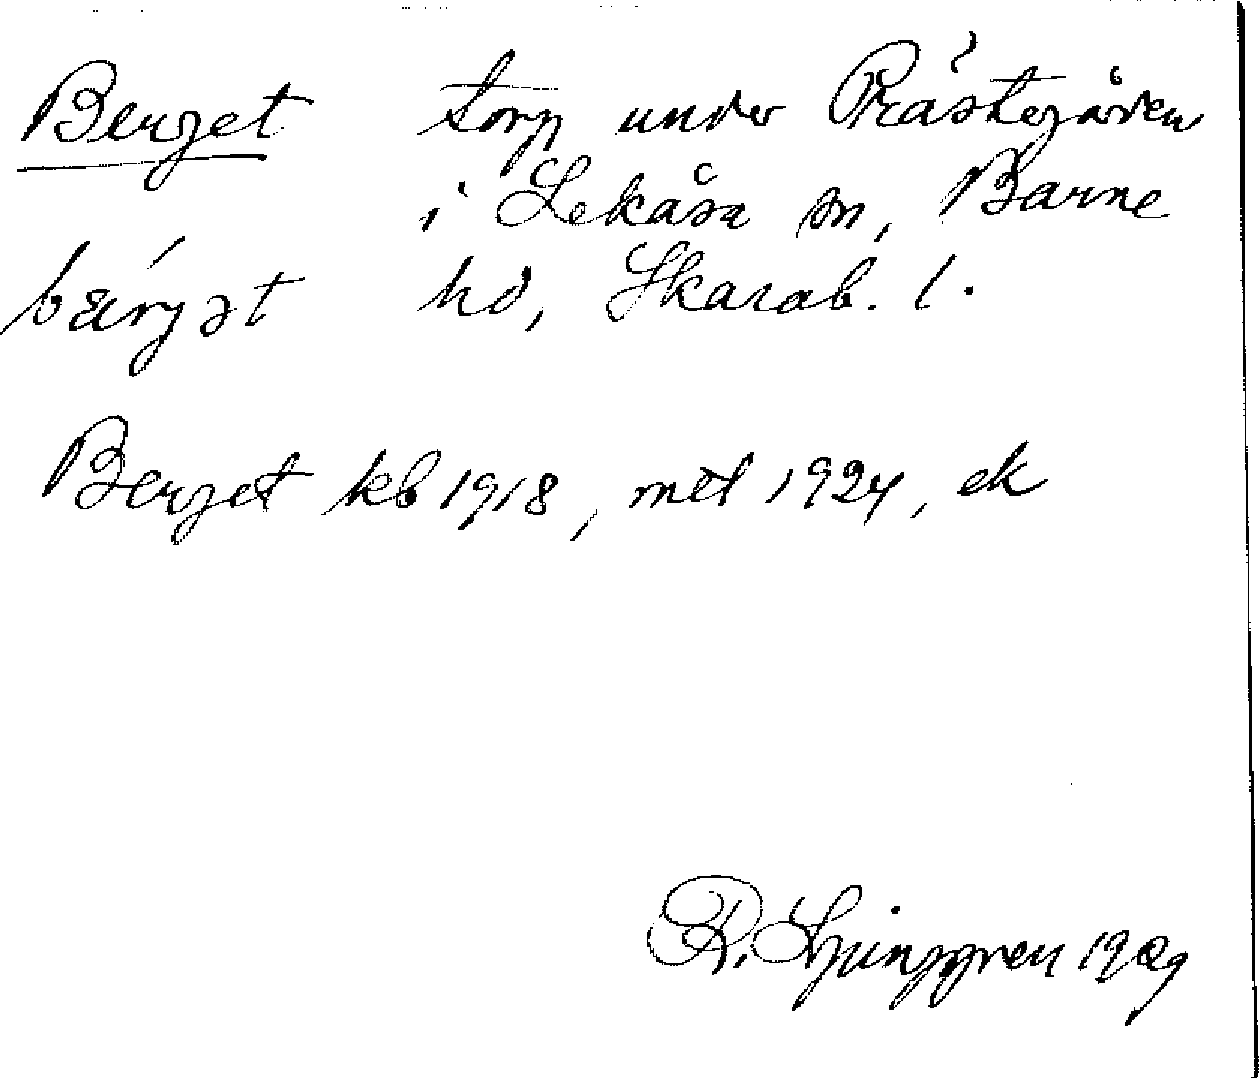 Berget torp under Prästegården
i Lekåsa sn, Barne
bærγət hd, Skarab. l.
Berget kb 1918, mtl 1924, ek
R. Ljunggren 1929